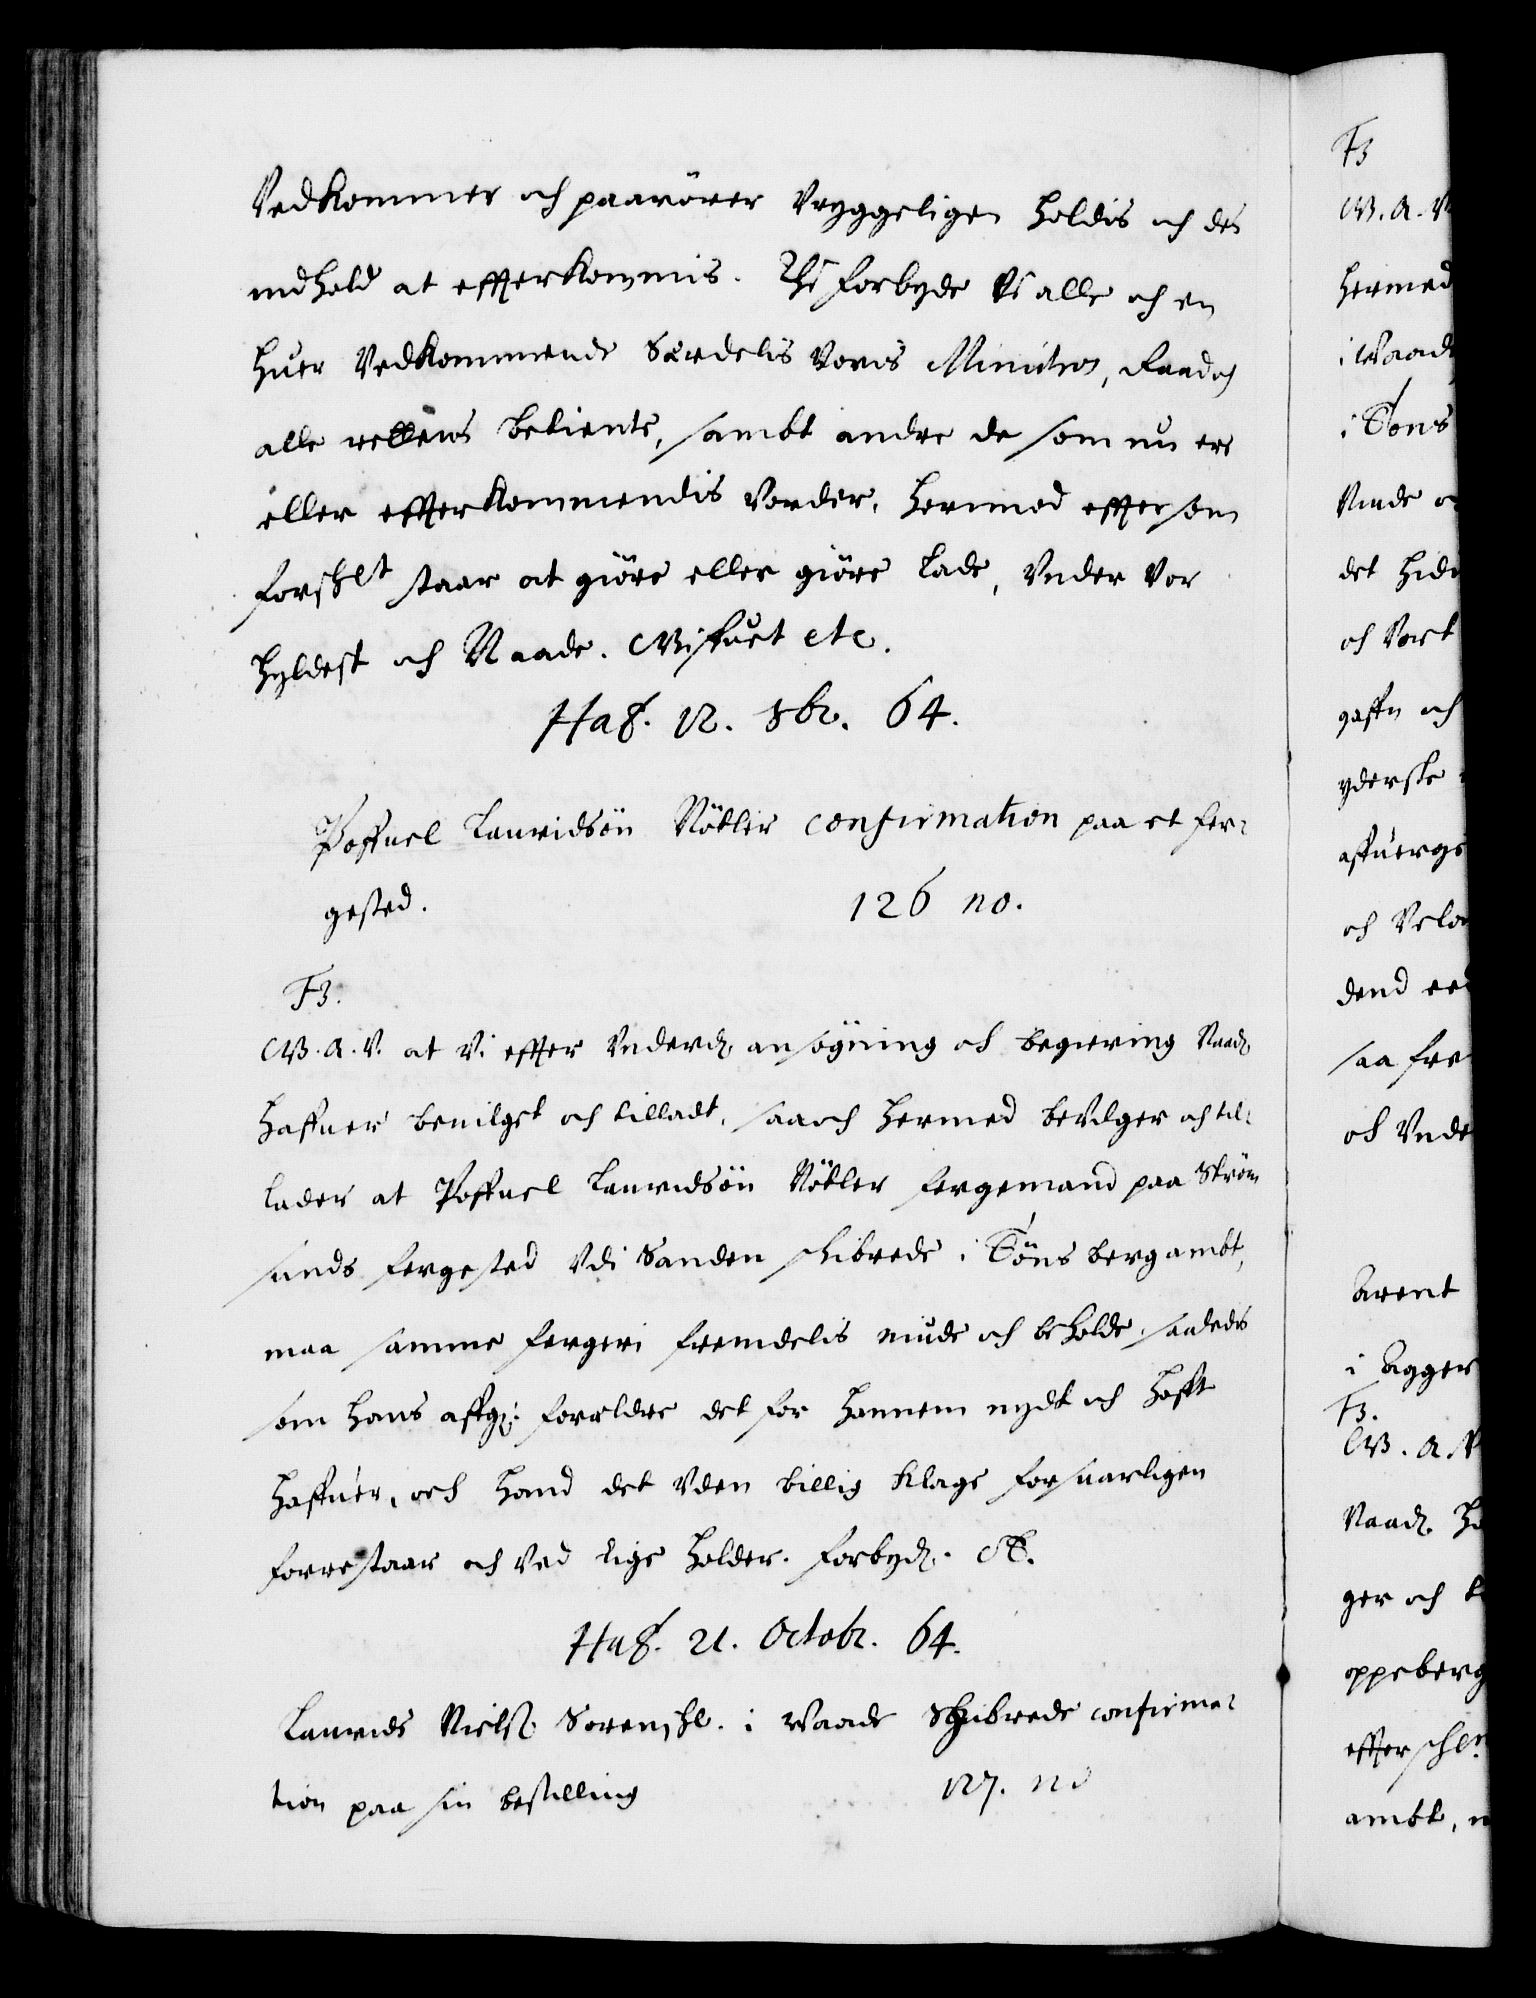 Vedkommer och paarörer Vryggeligen holdis och des
indhold at effterkommis. Thi forbyde Vi alle och en
huer Vedkommende Særdelis Voris Ministros, Raad och
alle rettens betiente, sambt andre de som nu ere
eller effterkommendis Vorder, hermod effter som
forschlt staar at giöre eller giöre lade, Vnder Vor
hyldest och Naade. Gifuet etc.
Haf. 12. 8br. 64.
Poffuel Lauridsön Nötler confirmation paa et fer-
gested. 126 no.
F3.
G. A. V. at Vi effter Vnderd. ansögning och begiering Naad.
haffuer beuilget och tilladt, saa och hermed bevilger och til-
lader at Poffuel Lauridsön Nötler fergemand paa Ström
sunds fergested Vdi Sanden schibrede i Tönsberg ambt,
maa samme fergeri fremdelis niude och beholde, saaledes
som hans affg: forældre det for hannem nydt och hafft
haffuer, och hand det Vden billig Klage forsuarligen
forrestaar och Ved lige holder. forbyd. etc.
Haf. 21. Octobr. 64.
Laurids Niels. Sorenschr. i Waade Schibrede confirma-
tion paa sin bestilling 127. no
F3
G. A. V
hermed
i Waade
i Tons
Niude o
det hid
och Vort
gaffn och
yderste
och Velor
saa fre
och Vnde
Arent
i Agger
F3.
G. A. V
Naad. ha
ger och t
oppeberg
effter
ambt,